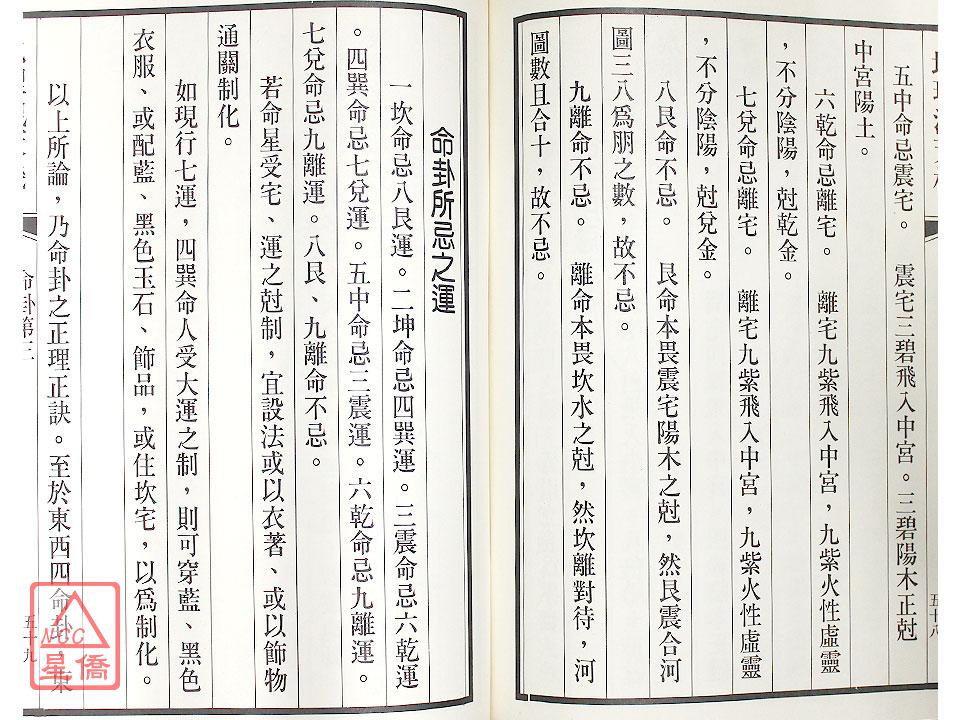 五中命忌震宅。　震宅三碧飛入中宮。三碧陽木正尅
中宮陽土。
六乾命忌離宅。　離宅九紫飛入中宮，九紫火性虛靈
，不分陰陽，尅乾金。
七兌命忌離宅。　離宅九紫飛入中宮，九紫火性虛靈
，不分陰陽，尅兌金。
八艮命不忌。　艮命本畏震宅陽木之尅，然艮震合河
圖三八爲朋之數，故不忌。
九離命不忌。　離命本畏坎水之尅，然坎離對待，河
圖數且合十，故不忌。
五十八
命卦所忌之運
一坎命忌八艮運。二坤命忌四巽運。三震命忌六乾運
。四巽命忌七兌運。五中命忌三震運。六乾命忌九離運。
七兌命忌九離運。八艮、九離命不忌。
若命星受宅、運之尅制，宜設法或以衣著、或以飾物
通關制化。
如現行七運，四巽命人受大運之制，則可穿藍、黑色
衣服、或配藍、黑色玉石、飾品，或住坎宅，以爲制化。
以上所論，乃命卦之正理正訣。至於東西四命卦，東
命卦第三
五十九
NCC
星僑